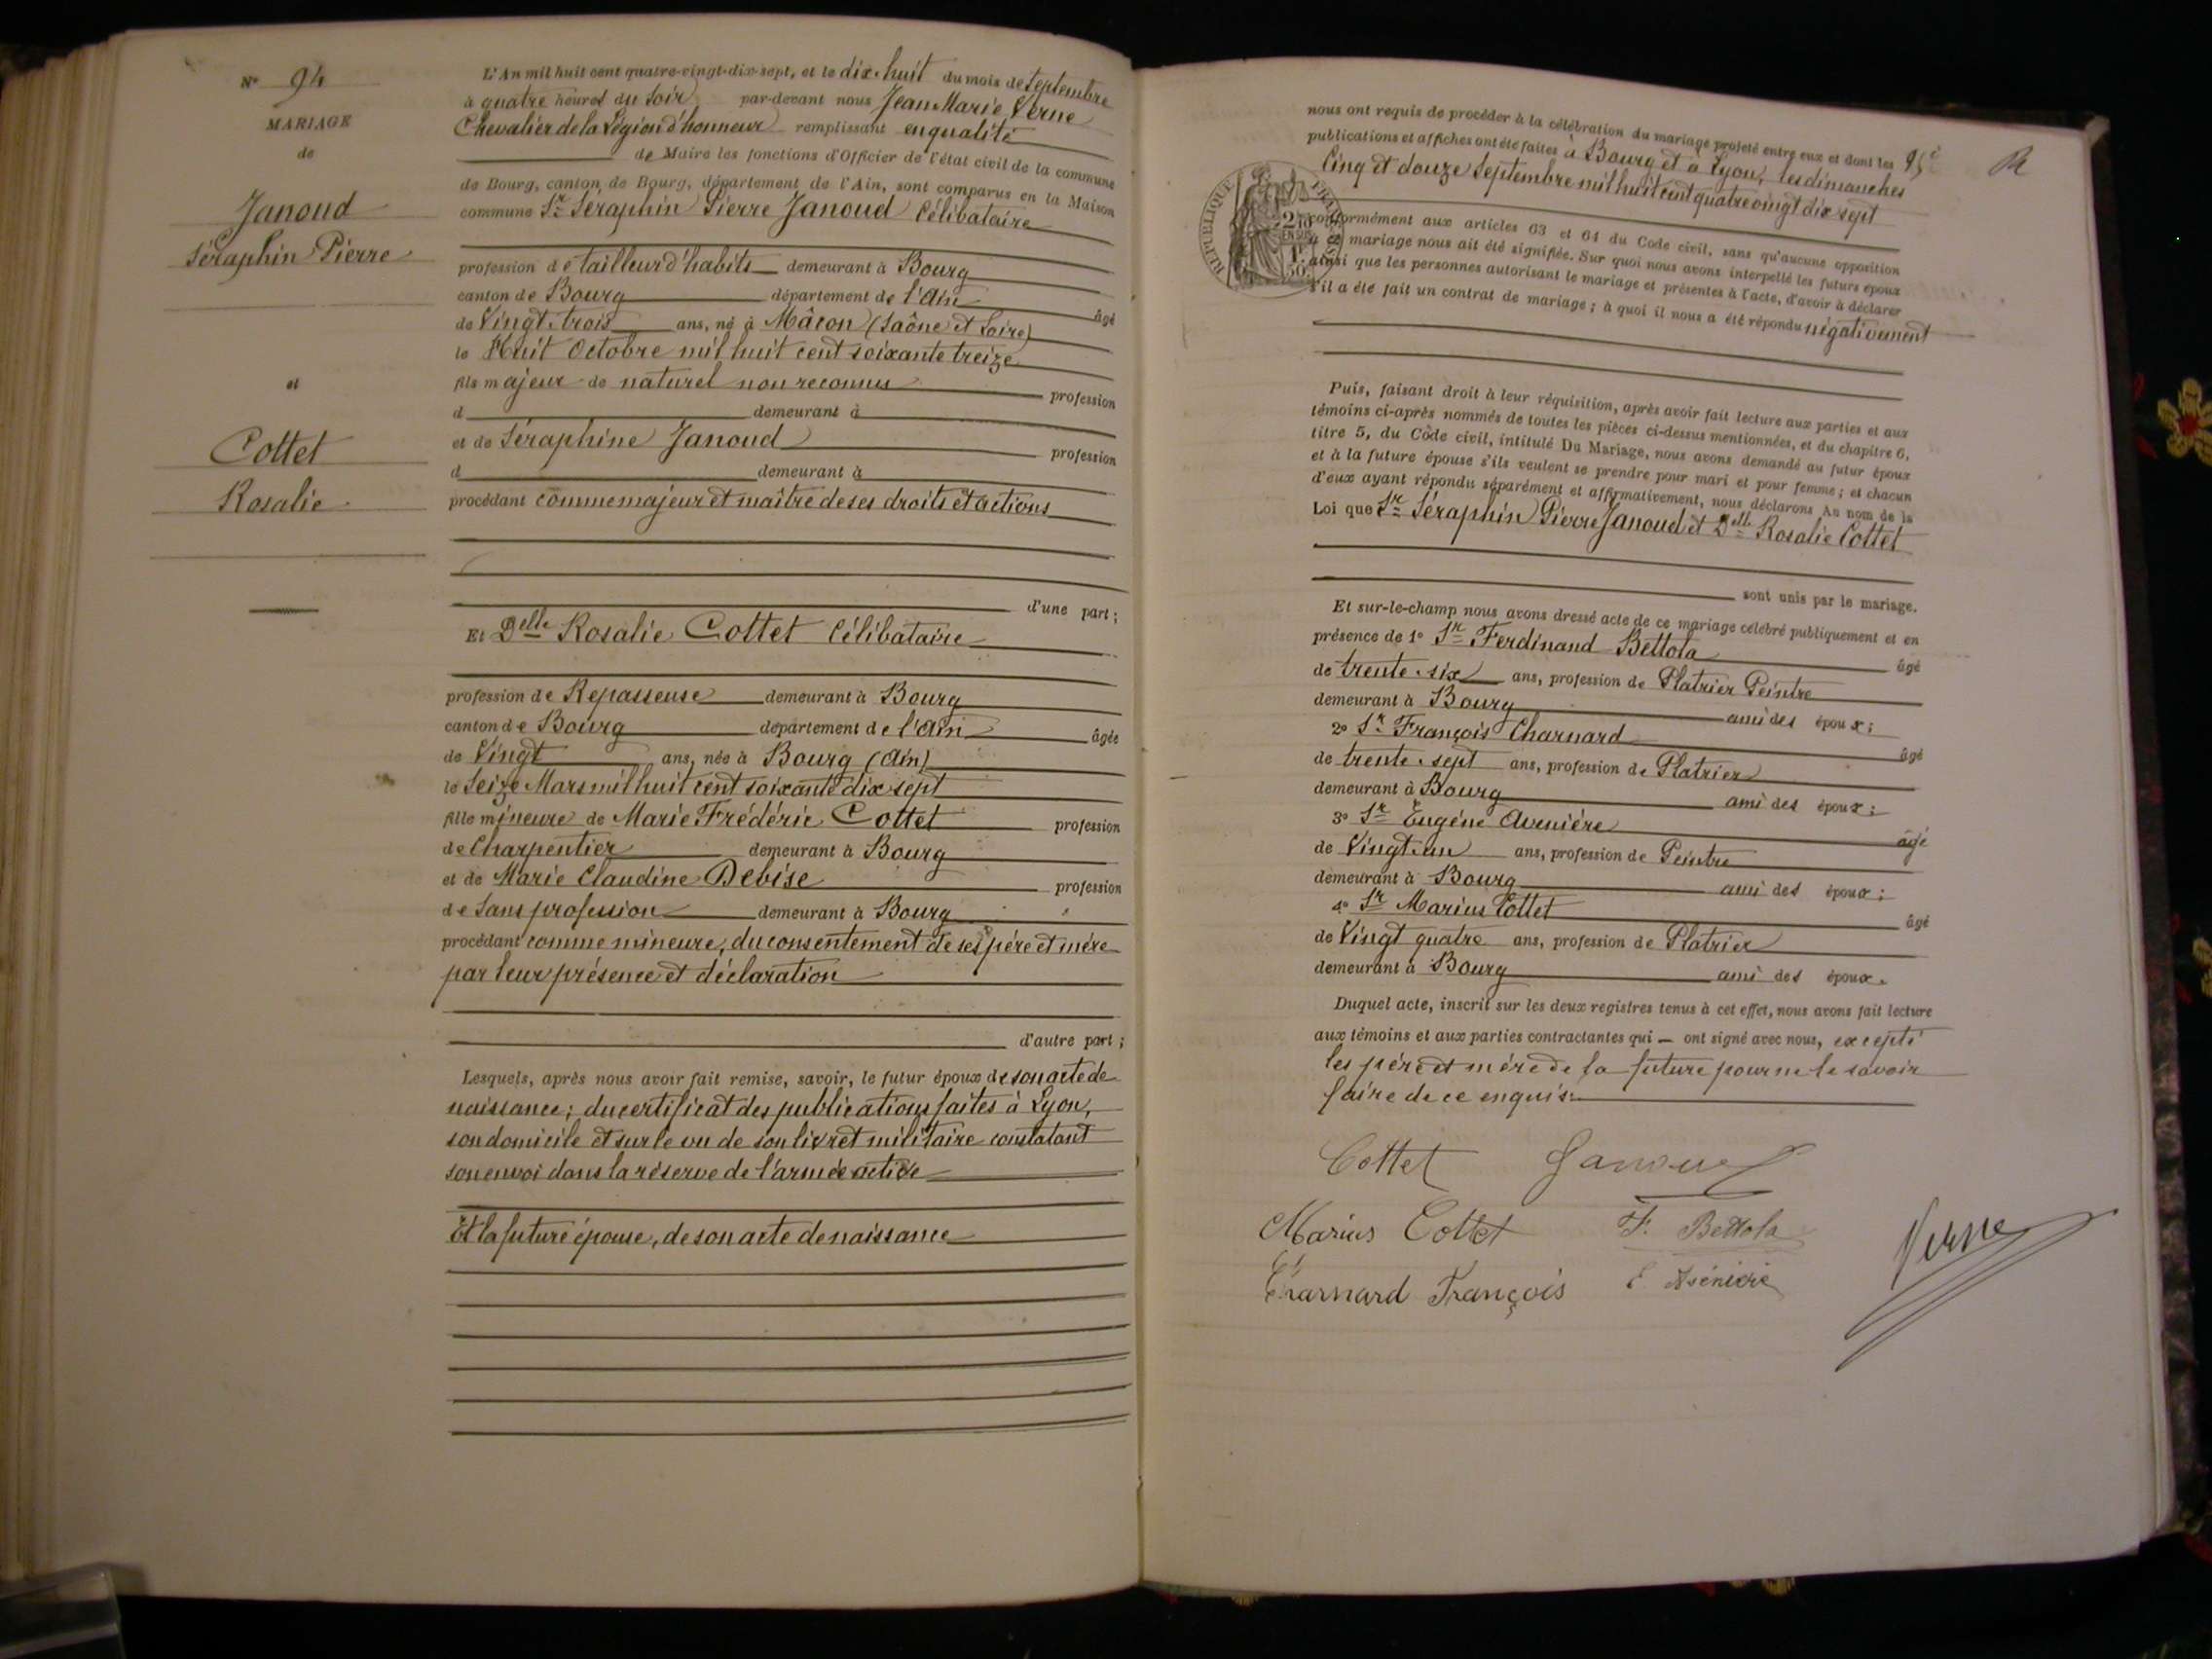 N° 94
MARIAGE
de
Janoud
Séraphin Pierre
et
Cottet
Rosalie
L'An mil huit cent quatre-vingt-dix-sept, et le dix-huit du mois de Septembre
à quatre heures du Soir par-devant nous Jean Marie Verne
Chevalier de la Légion d'honneur remplissant en qualité
de Maire les fonctions d'Officier de l'état civil de la commune
de Bourg, canton de Bourg, département de l'Ain, sont comparus en la Maison
commune Sr Séraphin Pierre Janoud Célibataire
profession de tailleur d'habits demeurant à Bourg
canton de Bourg département de l'Ain âgé
de Vingt-trois ans, né à Mâcon (Saône et Loire)
le Huit Octobre mil huit cent soixante treize
fils majeur de naturel non reconnu profession
d demeurant à
et de Séraphine Janoud profession
d demeurant à
procédant comme majeur et maître de ses droits et actions
d'une part ;
Et Delle Rosalie Cottet Célibataire
profession de Repasseuse demeurant à Bourg
canton de Bourg département de l'Ain âgée
de Vingt ans, née à Bourg (Ain)
le Seize Mars mil huit cent soixante dix sept
fille mineure de Marie Frédéric Cottet profession
de Charpentier demeurant à Bourg
et de Marie Claudine Debise profession
de Sans profession demeurant à Bourg
procédant comme mineure, du consentement de ses père et mère
par leur présence et déclaration
d'autre part ;
Lesquels, après nous avoir fait remise, savoir, le futur époux de son acte de
naissance ; du certificat des publications faites à Lyon,
son domicile et sur le vu de son livret militaire constatant
son envoi dans la réserve de l'armée active
Et la future épouse, de son acte de naissance
nous ont requis de procéder à la célébration du mariage projeté entre eux et dont les
publications et affiches ont été faites à Bourg et à Lyon, les dimanches
Cinq et douze Septembre mil huit cent quatre vingt dix sept
conformément aux articles 63 et 64 du Code civil, sans qu'aucune opposition
à ce mariage nous ait été signifiée. Sur quoi nous avons interpellé les futurs époux
ainsi que les personnes autorisant le mariage et présentes à l'acte, d'avoir à déclarer
s'il a été fait un contrat de mariage ; à quoi il nous a été répondu négativement
Puis, faisant droit à leur réquisition, après avoir fait lecture aux parties et aux
témoins ci-après nommés de toutes les pièces ci-dessus mentionnées, et du chapitre 6,
titre 5, du Code civil, intitulé Du Mariage, nous avons demandé au futur époux
et à la future épouse s'ils veulent se prendre pour mari et pour femme ; et chacun
d'eux ayant répondu séparément et affirmativement, nous déclarons Au nom de la
Loi que Sr Séraphin Pierre Janoud et Delle Rosalie Cottet
sont unis par le mariage.
Et sur-le-champ nous avons dressé acte de ce mariage célébré publiquement et en
présence de 1° Sr Ferdinand Bettola âgé
de trente-six ans, profession de Platrier Peintre
demeurant à Bourg ami des époux ;
2° Sr François Charnard âgé
de trente-sept ans, profession de Platrier
demeurant à Bourg ami des époux ;
3° Sr Eugène Avenière âgé
de Vingt-un ans, profession de Peintre
demeurant à Bourg ami des époux ;
4° Sr Marius Cottet âgé
de Vingt quatre ans, profession de Platrier
demeurant à Bourg ami des époux.
Duquel acte, inscrit sur les deux registres tenus à cet effet, nous avons fait lecture
aux témoins et aux parties contractantes qui — ont signé avec nous, excepté
les père et mère de la future pour ne le savoir
faire de ce enquis.
Cottet Janoud
Marius Cottet F. Bettola
Charnard François E. Avenière
Verne
95e
REPUBLIQUE FRANÇAISE
2/10
EN SUS
1F
50c